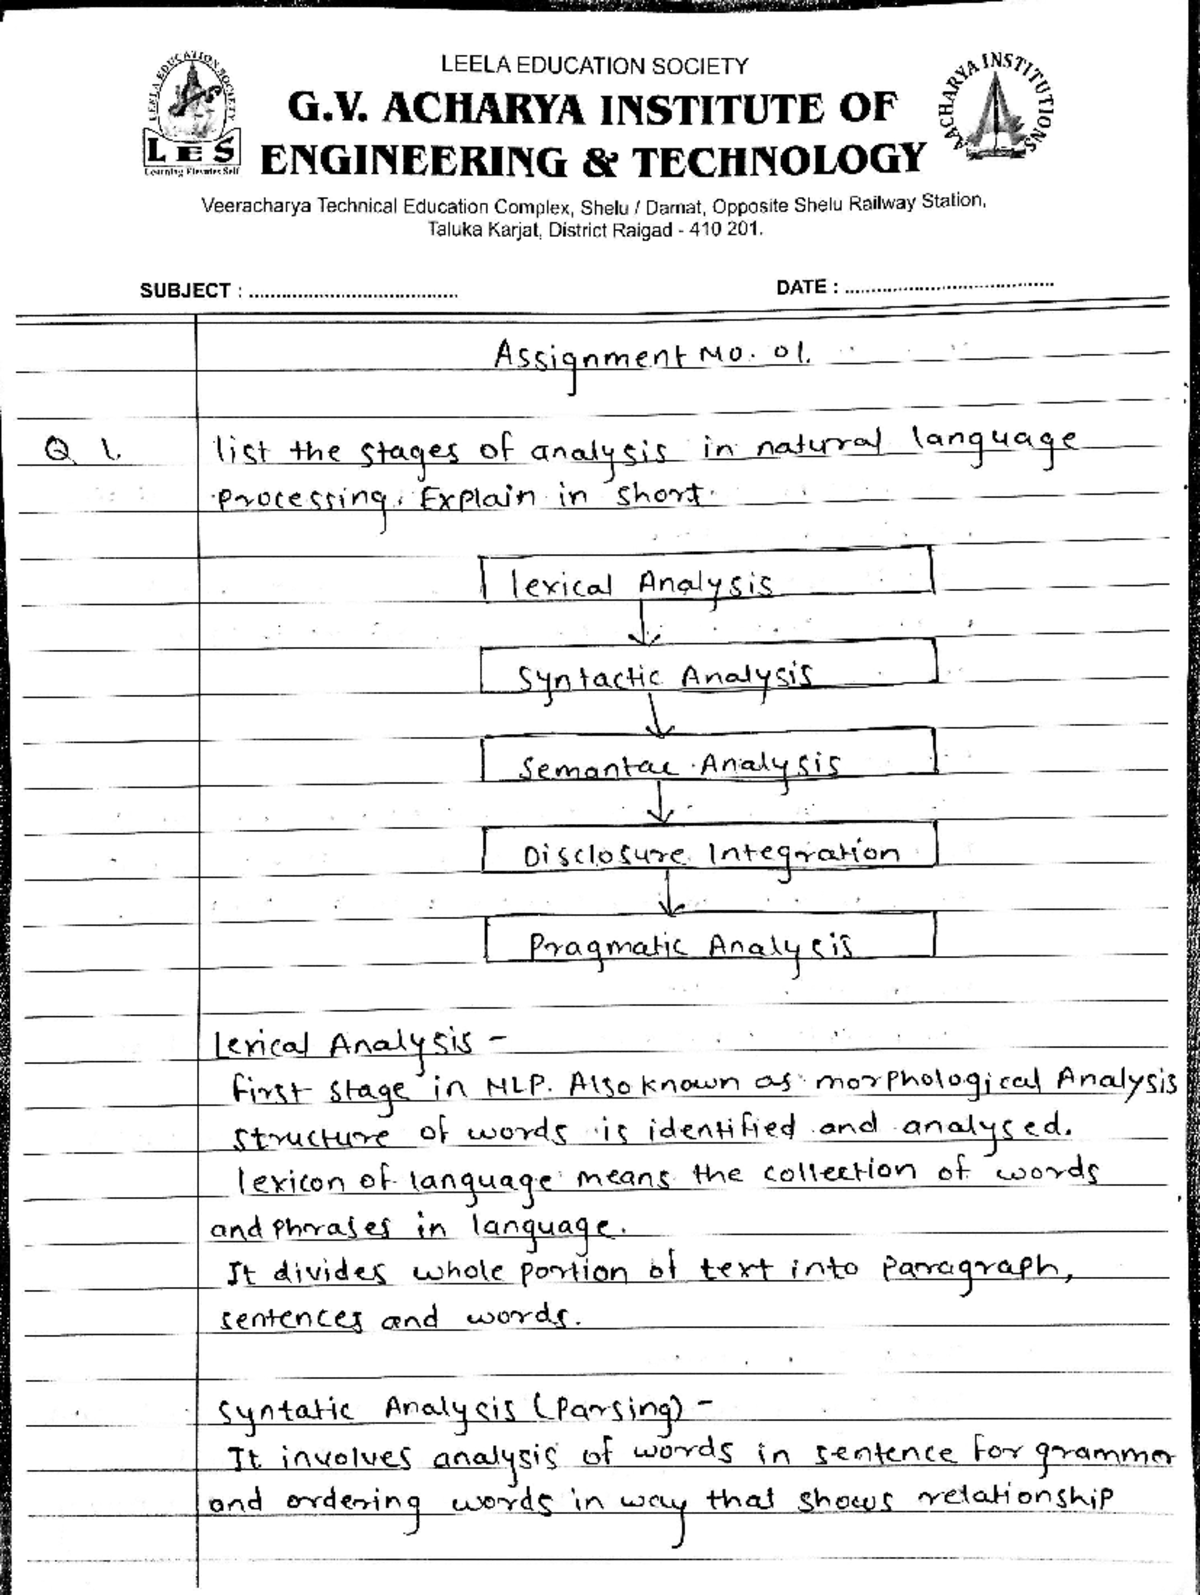 LEELA EDUCATION SOCIETY
G.V. ACHARYA INSTITUTE OF
ENGINEERING & TECHNOLOGY
Veeracharya Technical Education Complex, Shelu / Damat, Opposite Shelu Railway Station,
Taluka Karjat, District Raigad - 410 201.
LEELA EDUCATION SOCIETY
LES
Learning Elevates Self
AACHARYA INSTITUTIONS
SUBJECT : ......................................
DATE : ......................................
Assignment No. 01.
Q 1. list the stages of analysis in natural language
processing. Explain in short.
lexical Analysis
Syntactic Analysis
Semantac Analysis
Disclosure Integration
Pragmatic Analysis
Lexical Analysis -
first stage in NLP. Also known as morphological Analysis
structure of words is identified and analysed.
lexicon of language means the collection of words
and phrases in language.
It divides whole portion of text into paragraph,
sentences and words.
Syntatic Analysis (Parsing) -
It involves analysis of words in sentence for grammar
and ordering words in way that shows relationship